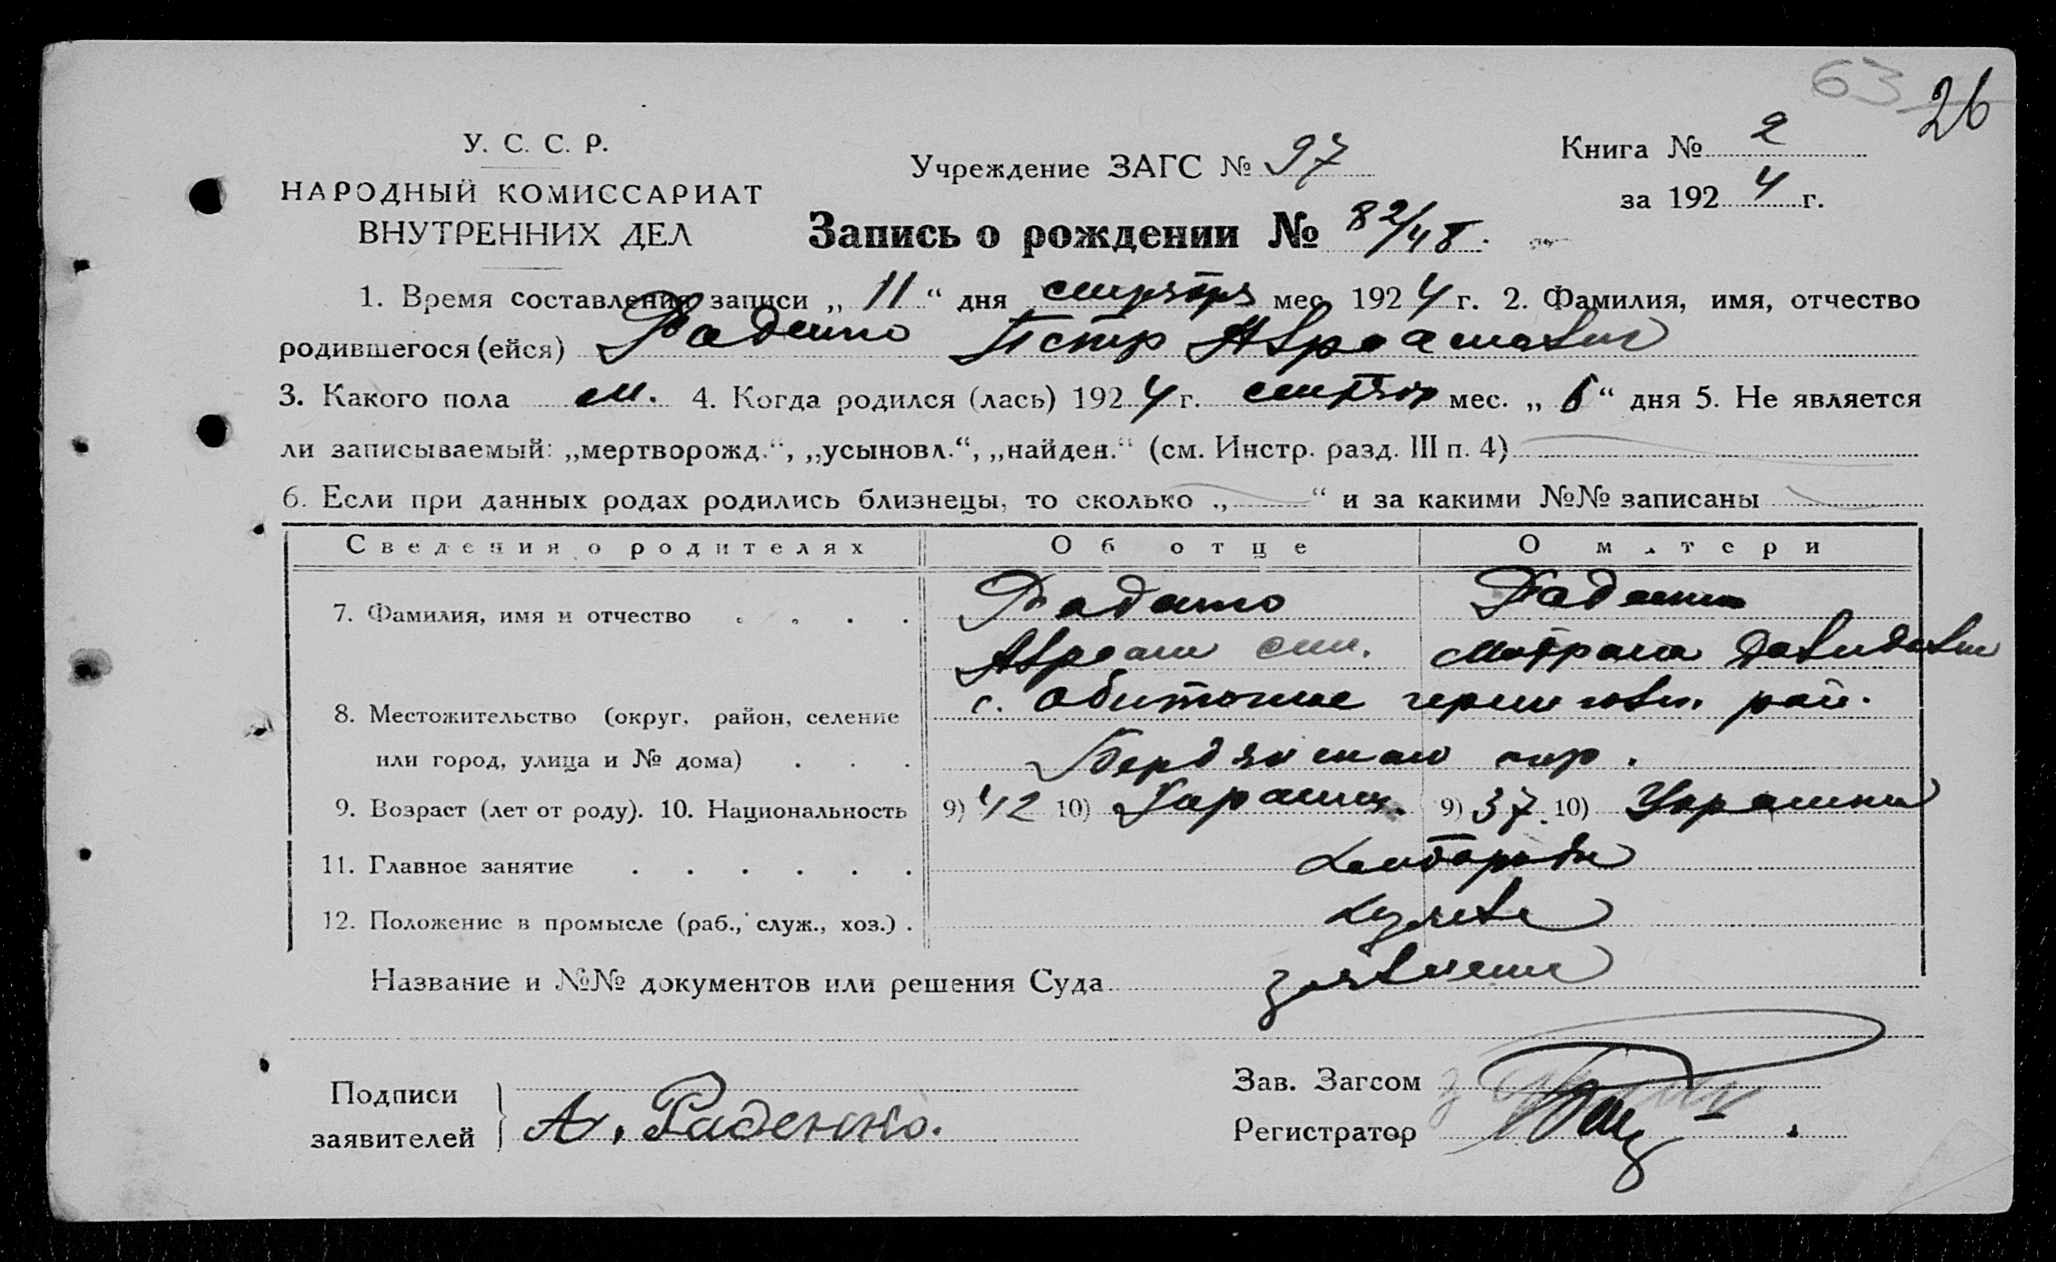 63 26
У. С. С. Р.
НАРОДНЫЙ КОМИССАРИАТ
ВНУТРЕННИХ ДЕЛ
Учреждение ЗАГС № 97
Книга № 2
за 1924 г.
Запись о рождении № 82/48.
1. Время составления записи „ 11 “ дня сентября мес. 1924 г. 2. Фамилия, имя, отчество
родившегося (ейся) Раденко Петр Авраамович
3. Какого пола м. 4. Когда родился (лась) 1924 г. сентябр мес. „ 6 “ дня 5. Не является
ли записываемый: „мертворожд.“, „усыновл.“, „найден.“ (см. Инстр. разд. III п. 4)
6. Если при данных родах родились близнецы, то сколько „ “ и за какими №№ записаны
Сведения о родителях Об отце О матери
7. Фамилия, имя и отчество . . . . Раденко Раденко
Авраам Сем. Мотрона Давидовн
8. Местожительство (округ, район, селение с. Обиточное черниговск. рай.
или город, улица и № дома) . . . Бердянского окр.
9. Возраст (лет от роду). 10. Национальность 9) 42 10) Украинц. 9) 37. 10) Украинк
11. Главное занятие . . . . . . хлебороб
12. Положение в промысле (раб., служ., хоз.) . хозяева
Название и №№ документов или решения Суда заявление
Подписи
заявителей } А. Раденко.
Зав. Загсом
Регистратор